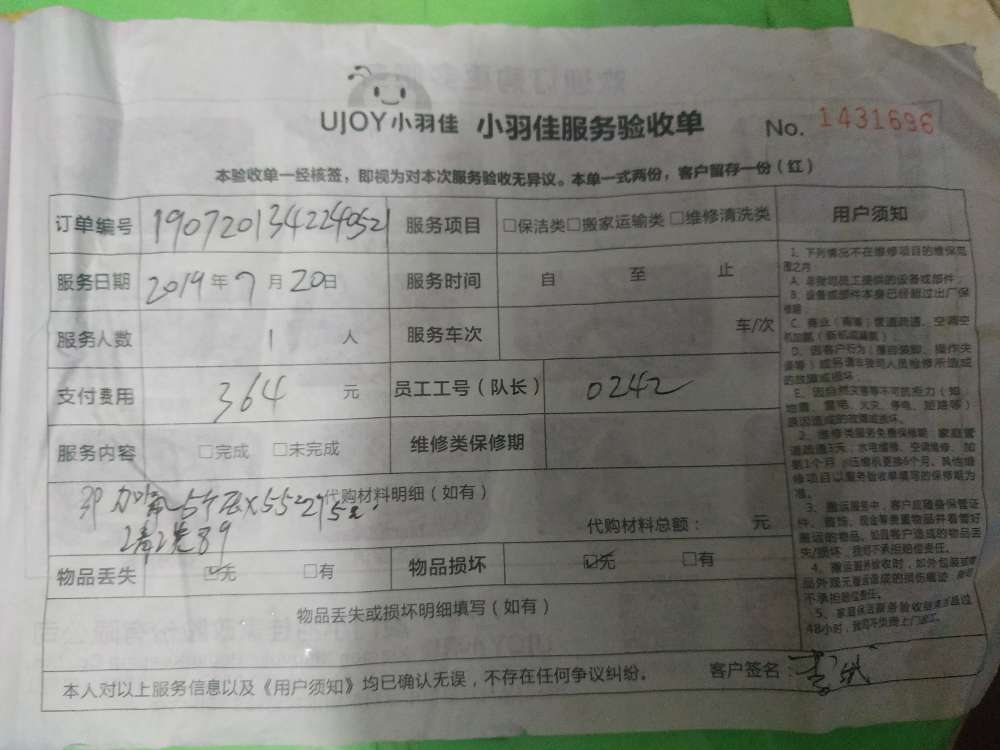 UJOY小羽佳 小羽佳服务验收单 No. 1431696
本验收单一经核签,即视为对本次服务验收无异议。本单一式两份,客户留存一份(红)
订单编号 190720134224052 服务项目 □保洁类□搬家运输类□维修清洗类
服务日期 2019年7月20日 服务时间 自 至 止
服务人数 1 人 服务车次 车/次
支付费用 364 元 员工工号(队长) 0242
服务内容 □完成 □未完成 维修类保修期
代购材料明细(如有)
加 5 ×55=275元
289
代购材料总额: 元
物品丢失 ☑无 □有 物品损坏 ☑无 □有
物品丢失或损坏明细填写(如有)
本人对以上服务信息以及《用户须知》均已确认无误,不存在任何争议纠纷。 客户签名:
用户须知
1、下列情况不在维修项目的维保范
围之内:
A、非我司员工提供的设备或部件
B、设备或部件本身已经超过出厂保
修期
C、商业(商落)管道疏通、空调空
D、因客户行为(擅自装卸、操作失
误等)或另请非我司人员检修所造成
的故障或损坏
E、因自然灾害等不可抗拒力(如:
地震、雷电、火灾、停电、短路等)
原因造成的故障或损坏。
2、维修类服务免费保修期:家庭管
道疏通3天;水电维修、空调维修、加
氟1个月;压缩机更换6个月。其他维
修项目以服务验收单填写的保修期为
准。
3、搬运服务中,客户应随身保管证
件、首饰、现金等贵重物品并看管好
搬运的物品。如因客户造成的物品丢
失/损坏,我司不承担赔偿责任。
4、搬运服务验收时,如外包装或物
品外观无搬运造成的损伤痕迹,我司
不承担赔偿责任。
5、家庭保洁服务验收结束后超过
48小时,我司不负责上门返工。